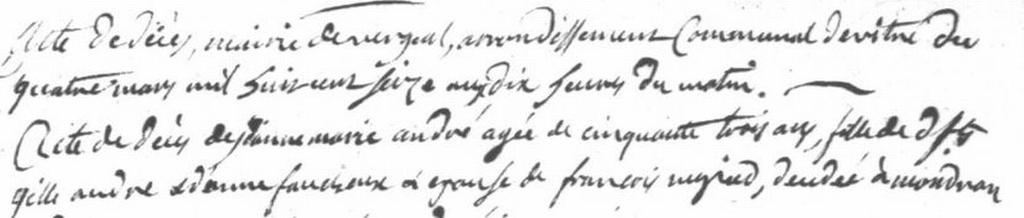 Acte de décès, mairie de vergeal, arrondissement Communal de vitré du
quatre mars mil huit cent seize aux dix heures du matin.
Acte de décès de jeanne marie andré agée de cinquante trois ans, fille de
gille andré & d'anne faucheux & epouse de francois décédée à mondran